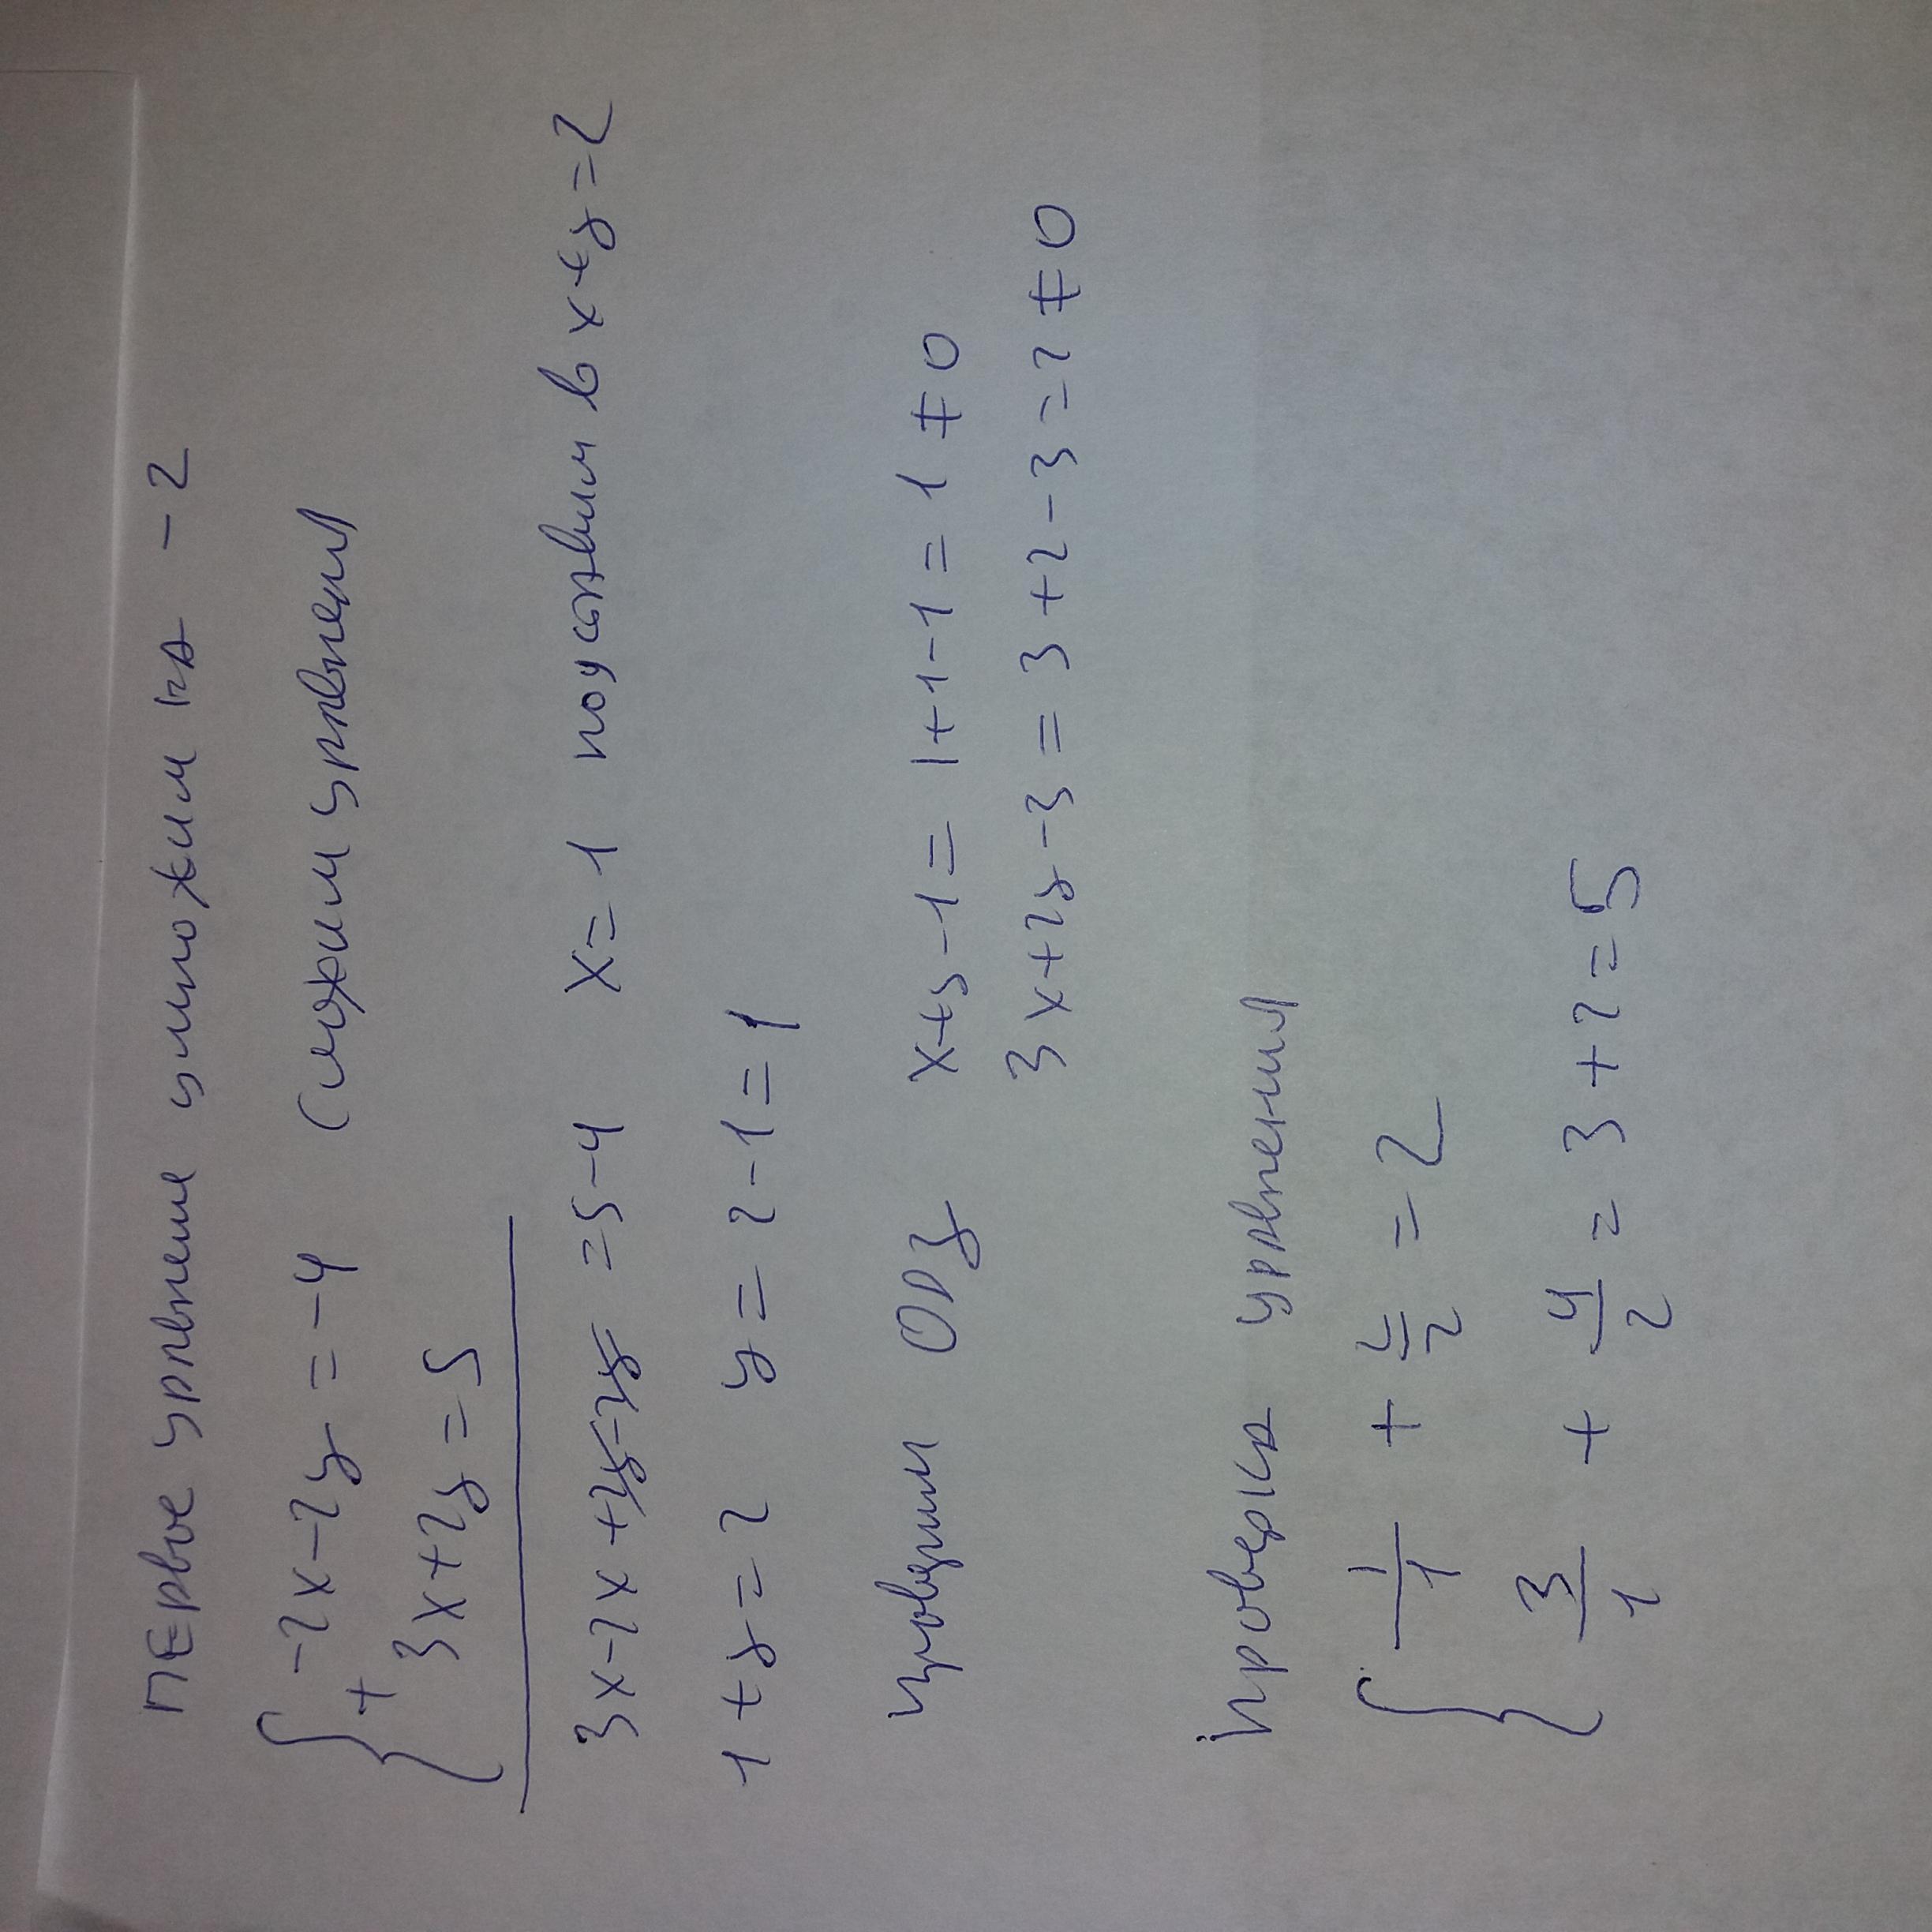 первое уравнение умножим на -2
{ -2x-2y=-4 сложим уравнения
+ 3x+2y=5
3x-2x+2y-2y=5-4 x=1 подставим в x+y=2
1+y=2 y=2-1=1
проверим ОДЗ x+y-1=1+1-1=1≠0
3x+2y-3=3+2-3=2≠0
проверка уравнения
{ 1/1 + 2/2 =2
3/1 + 4/2 =3+2=5